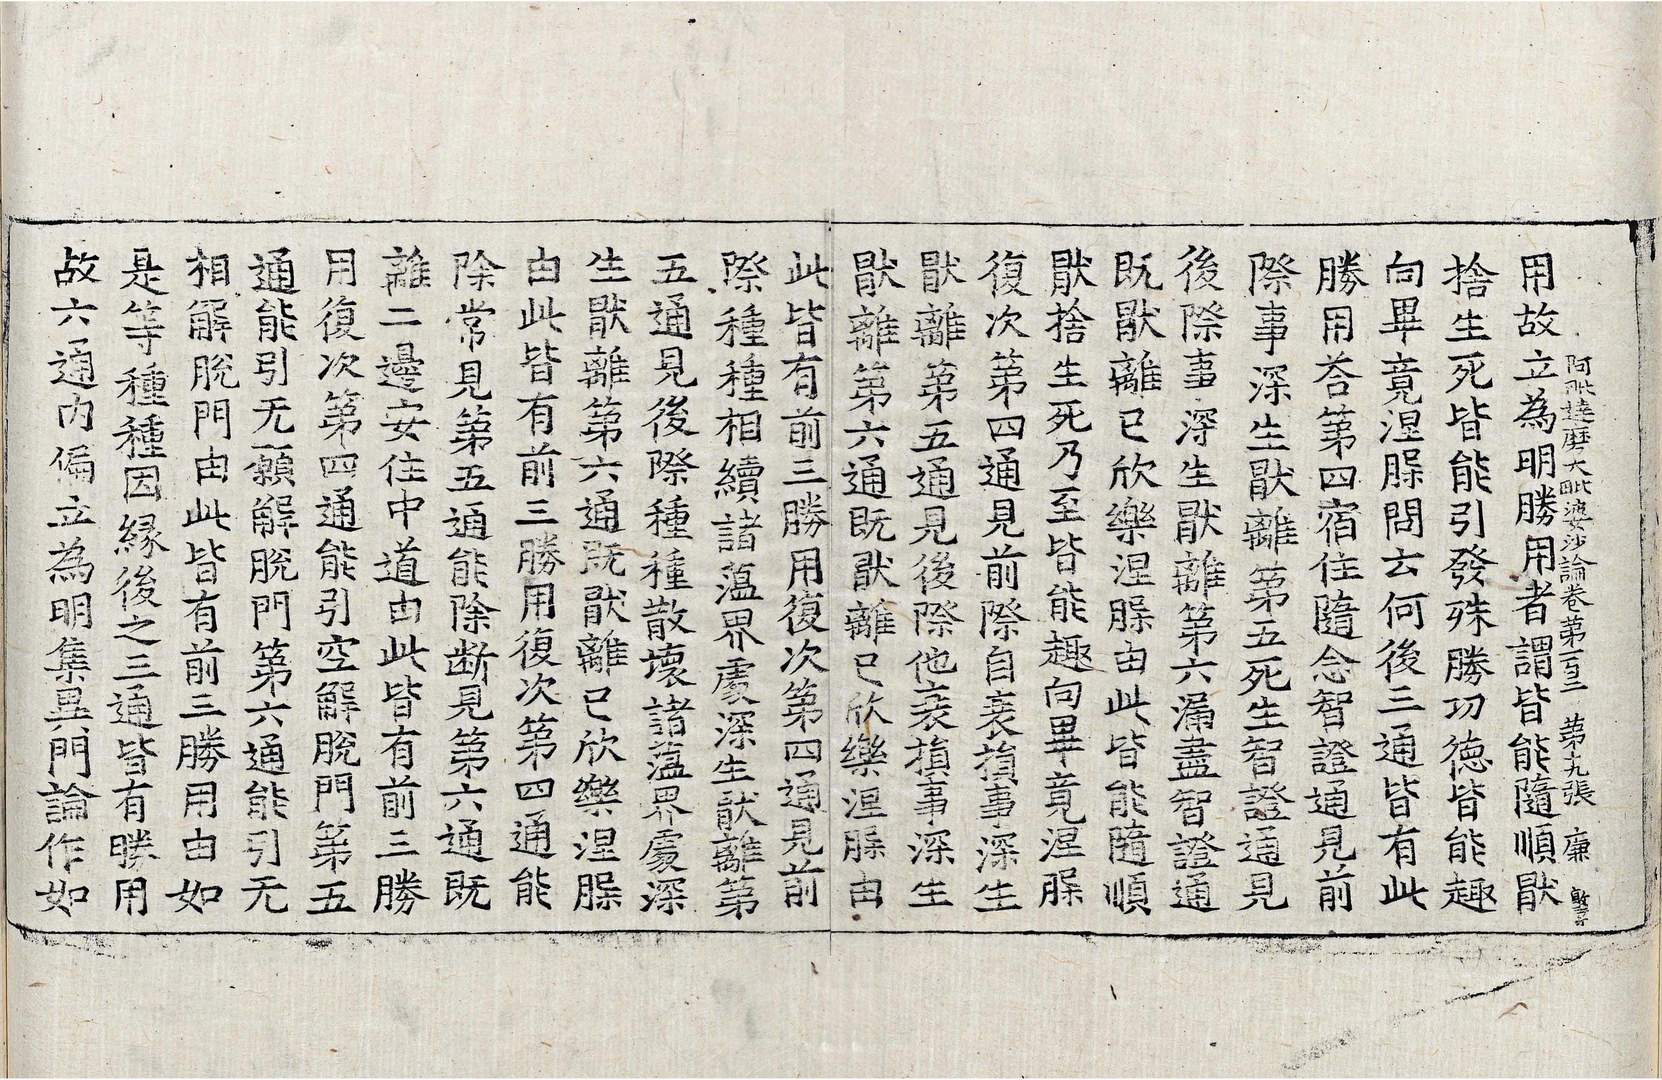 阿毗達磨大毗婆沙論卷第一百二 第十九張 廉
用故立為明勝用者謂皆能隨順猒
捨生死皆能引發殊勝功德皆能趣
向畢竟涅槃問云何後三通皆有此
勝用荅第四宿住隨念智證通見前
際事深生猒離第五死生智證通見
後際事深生猒離第六漏盡智證通
既猒離已欣樂涅槃由此皆能隨順
猒捨生死乃至皆能趣向畢竟涅槃
復次第四通見前際自衰損事深生
猒離第五通見後際他衰損事深生
猒離第六通既猒離已欣樂涅槃由
此皆有前三勝用復次第四通見前
際種種相續諸蘊界處深生猒離第
五通見後際種種散壞諸蘊界處深
生猒離第六通既猒離已欣樂涅槃
由此皆有前三勝用復次第四通能
除常見第五通能除断見第六通既
離二邊安住中道由此皆有前三勝
用復次第四通能引空解脫門第五
通能引无願解脫門第六通能引无
相解脫門由此皆有前三勝用由如
是等種種因緣後之三通皆有勝用
故六通內偏立為明集異門論作如